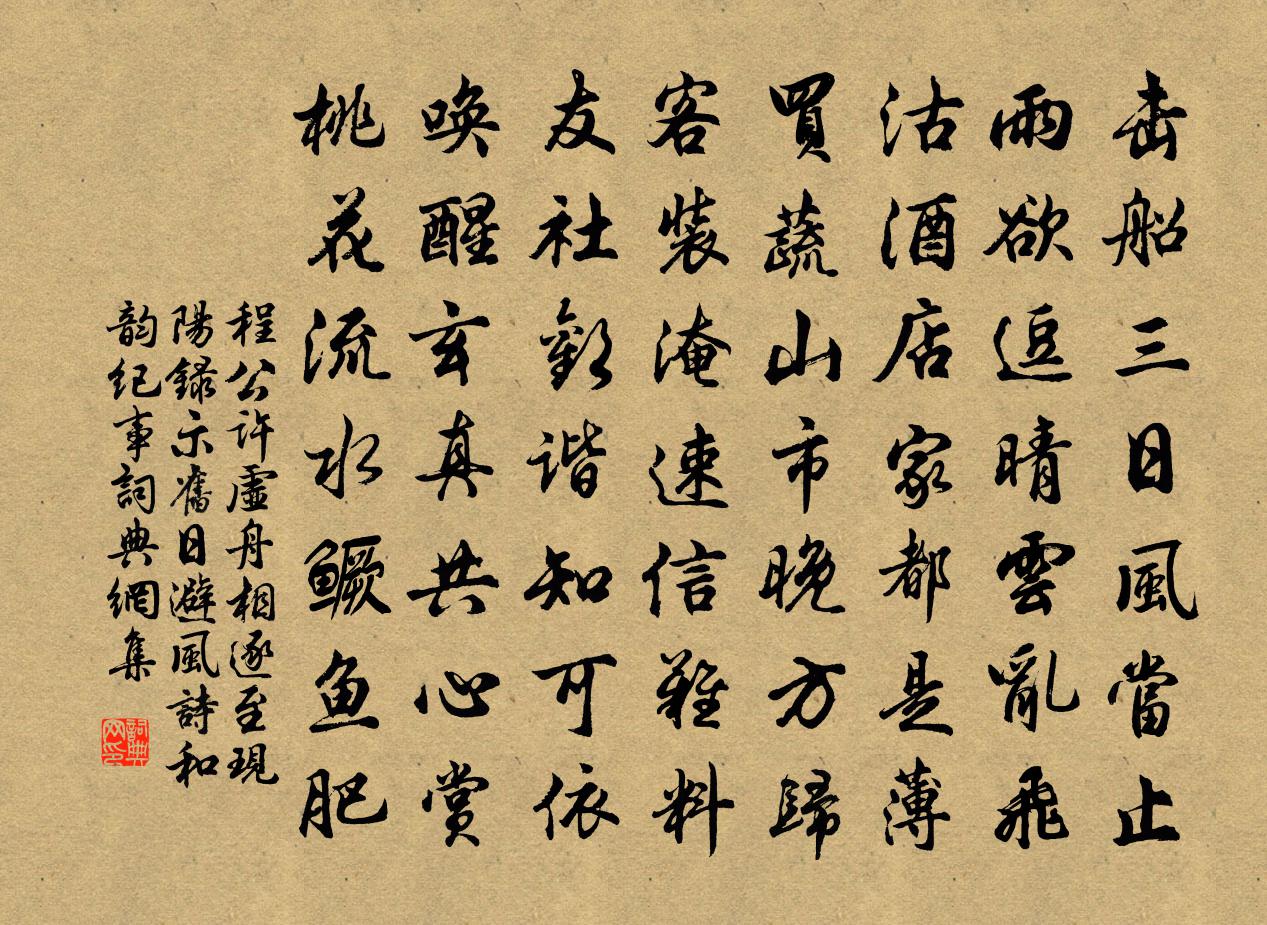 击船三日風當止
雨欲逗晴雲亂飛
沽酒店家都是薄
買蔬山市晚方歸
客裝淹速信難料
友社歡諧知可依
喚醒玄真共心賞
桃花流水鳜鱼肥
程公许虛舟相逐至現
陽錄示舊日避風詩和
韵纪事詞典網集
詞典网印